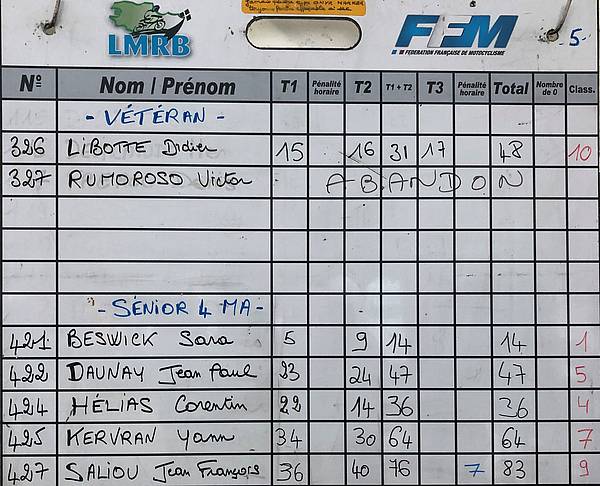 LMRB
FFM
FEDERATION FRANÇAISE DE MOTOCYCLISME
5
N° Nom / Prénom T1 Pénalité horaire T2 T1 + T2 T3 Pénalité horaire Total Nombre de 0 Class.
- VÉTÉRAN -
326 LIBOTTE Didier 15 16 31 17 48 10
327 RUMOROSO Victor ABANDON
- SÉNIOR 4 MA -
421 BESWICK Sara 5 9 14 14 1
422 DAUNAY Jean Paul 23 24 47 47 5
424 HÉLIAS Corentin 22 14 36 36 4
425 KERVRAN Yann 34 30 64 64 7
427 SALIOU Jean François 36 40 76 7 83 9